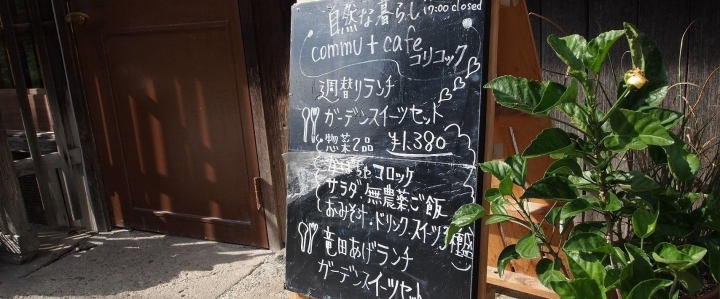 自然な暮らし 17:00 closed
commu + cafe
コリコック
週替りランチ
ガーデンスイーツセット
惣菜2品 ¥1,380
コロッケ
サラダ・無農薬ご飯
おみそ汁・ドリンク・スイーツ3種盛
竜田あげランチ
ガーデンスイーツセット